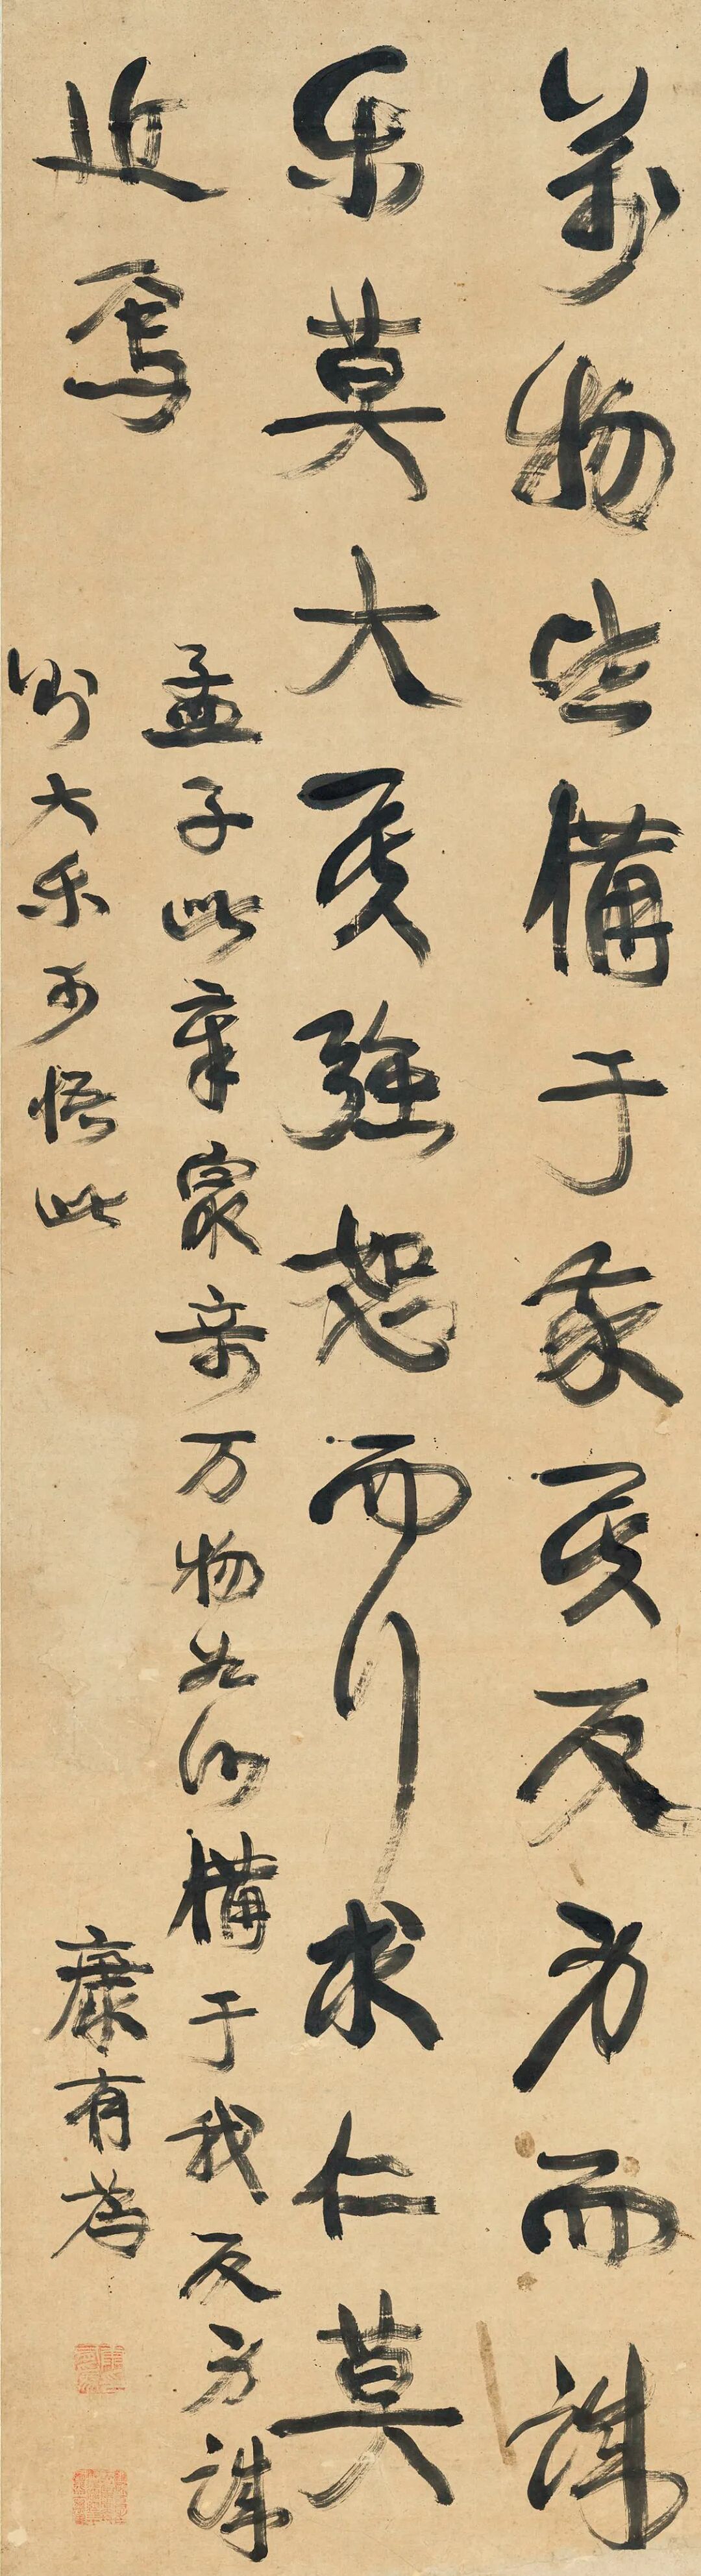 萬物皆備于我矣反身而誠
樂莫大焉强恕而行求仁莫
近焉
孟子此章最奇万物如何備于我反身誠
則大樂可悟此
康有為